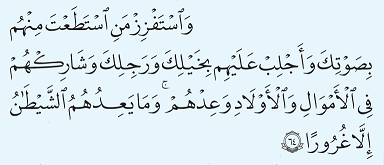 وَٱسۡتَفۡزِزۡ مَنِ ٱسۡتَطَعۡتَ مِنۡهُم
بِصَوۡتِكَ وَأَجۡلِبۡ عَلَيۡهِم بِخَيۡلِكَ وَرَجِلِكَ وَشَارِكۡهُمۡ
فِي ٱلۡأَمۡوَٰلِ وَٱلۡأَوۡلَٰدِ وَعِدۡهُمۡۚ وَمَا يَعِدُهُمُ ٱلشَّيۡطَٰنُ
إِلَّا غُرُورًا ٦٤